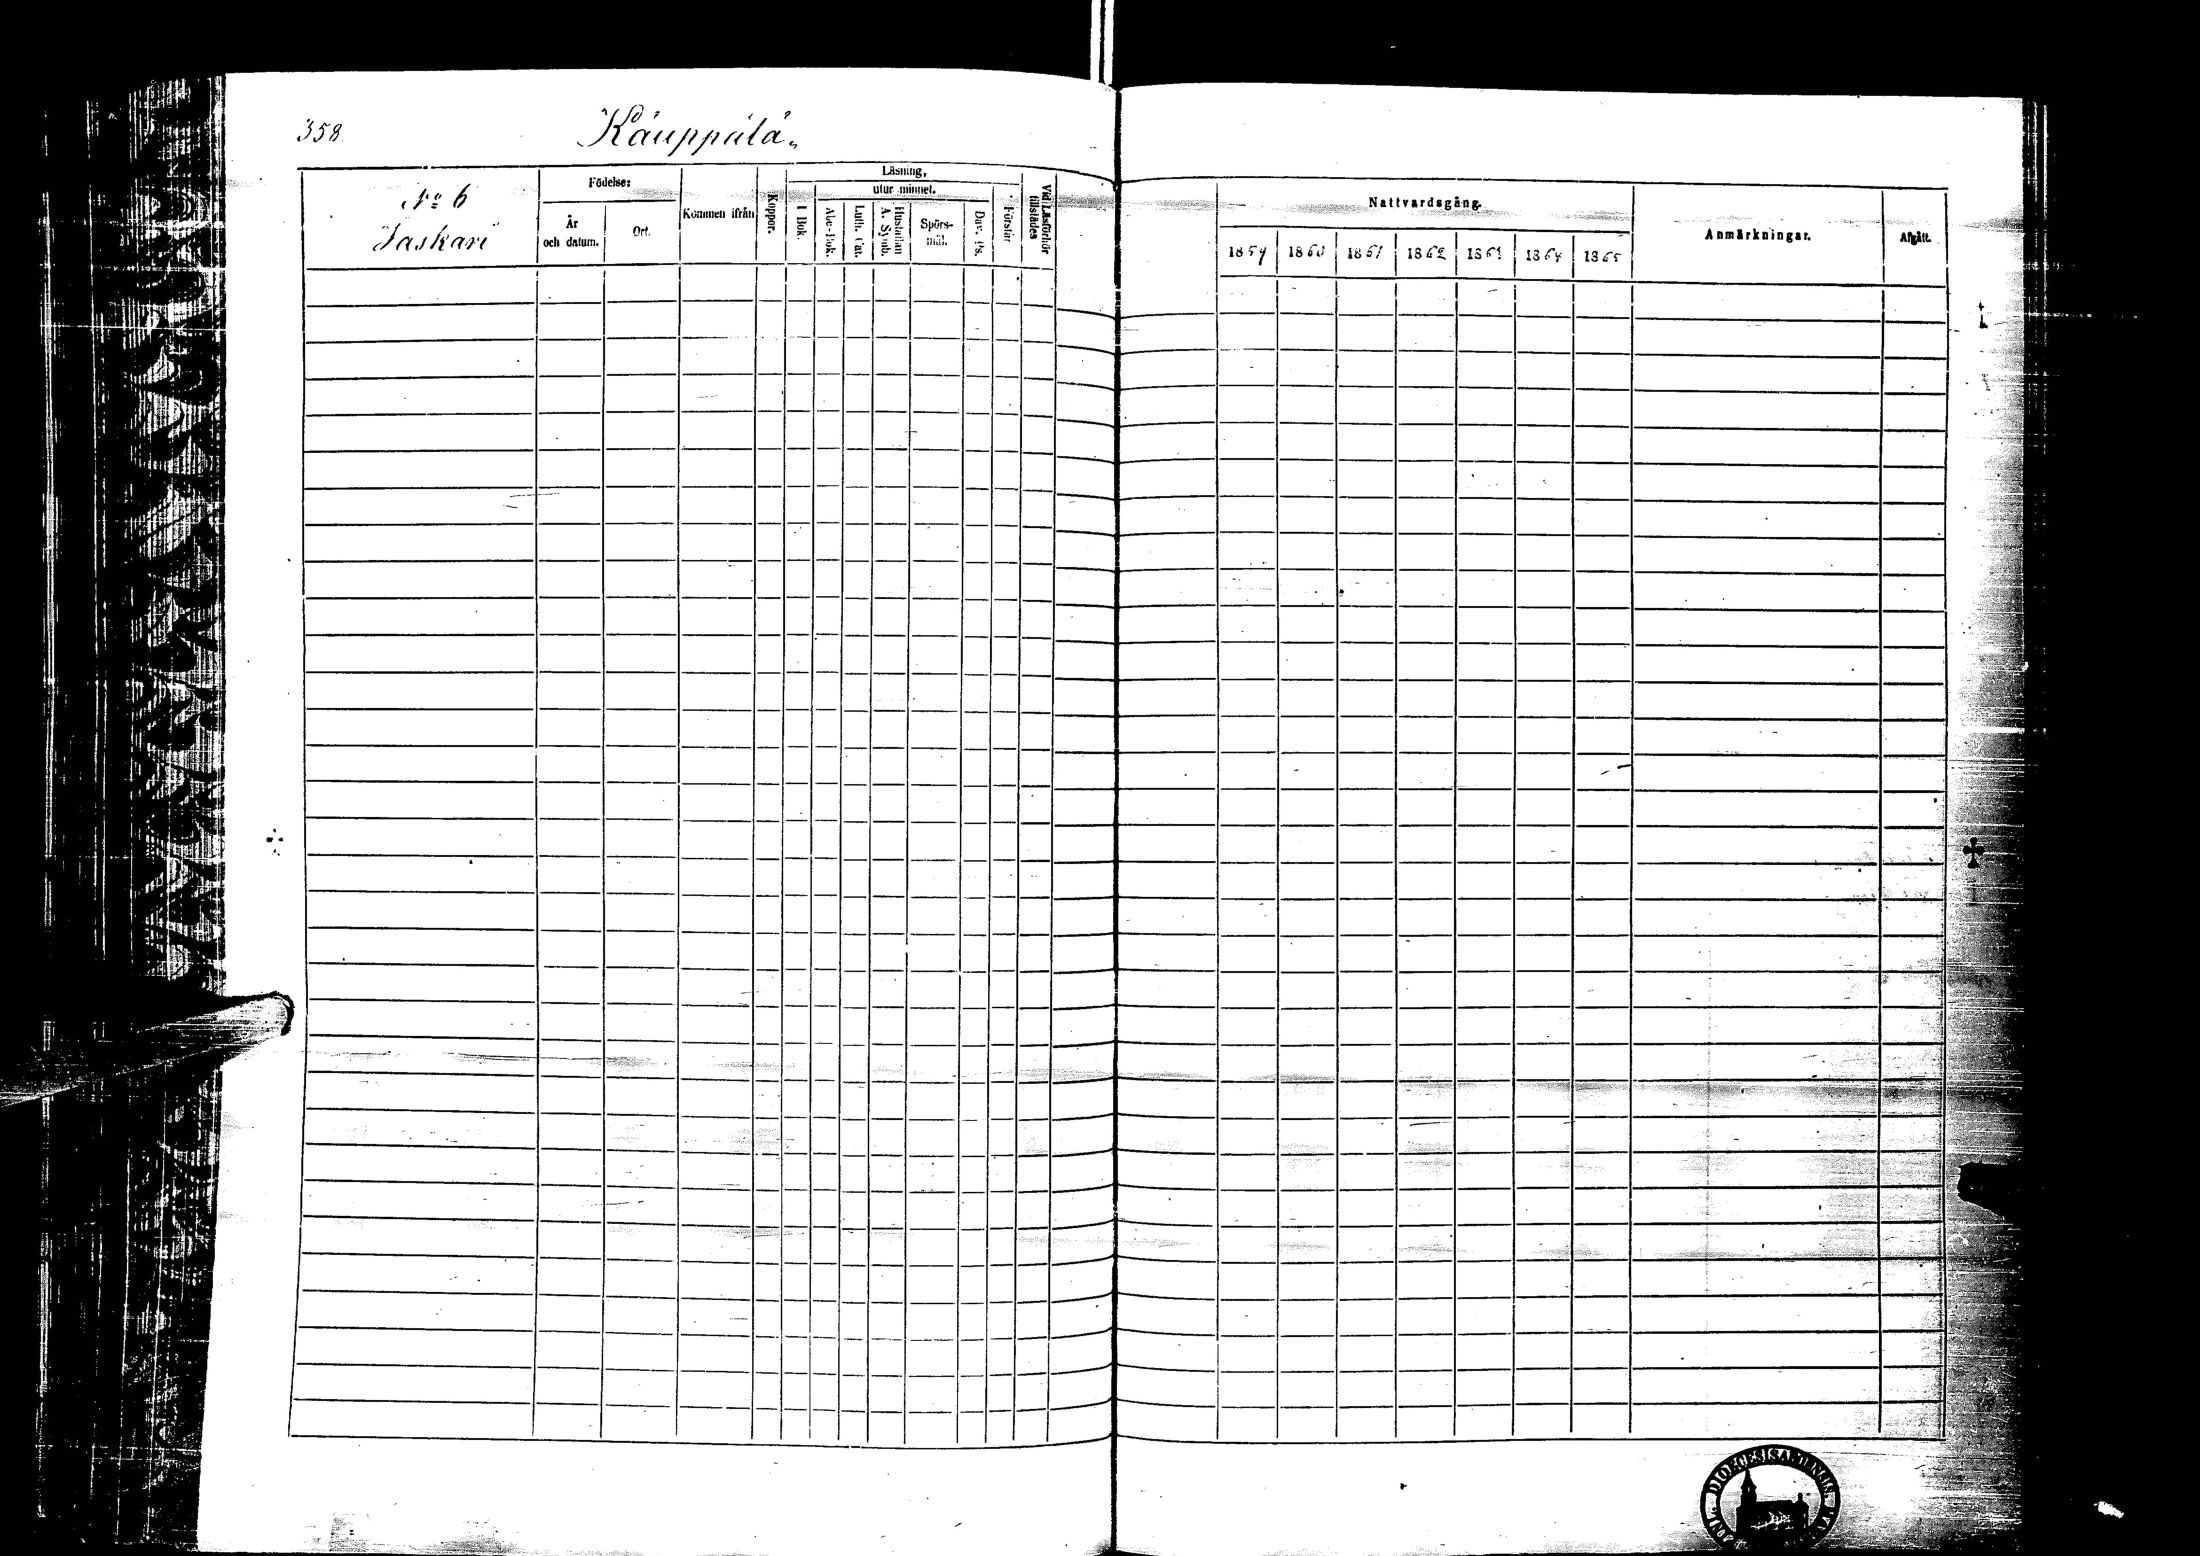 358
Käuppälä
Nº 6
Jaskari
Födelse:
År
och datum.
Ort.
Kommen ifrån
Koppor.
Läsning,
utur minnet.
I Bok.
Abc-Bok.
Luth. Cat.
Hustaflan
A. Symb.
Spörs-
mål.
Dav. Ps.
Förstår
Vid Läsförhör
tillstädes
Nattvardsgång.
1859 1860 1861 1862 1863 1864 1865
Anmärkningar.
Afgått.
DIOECESIS ABOENSIS